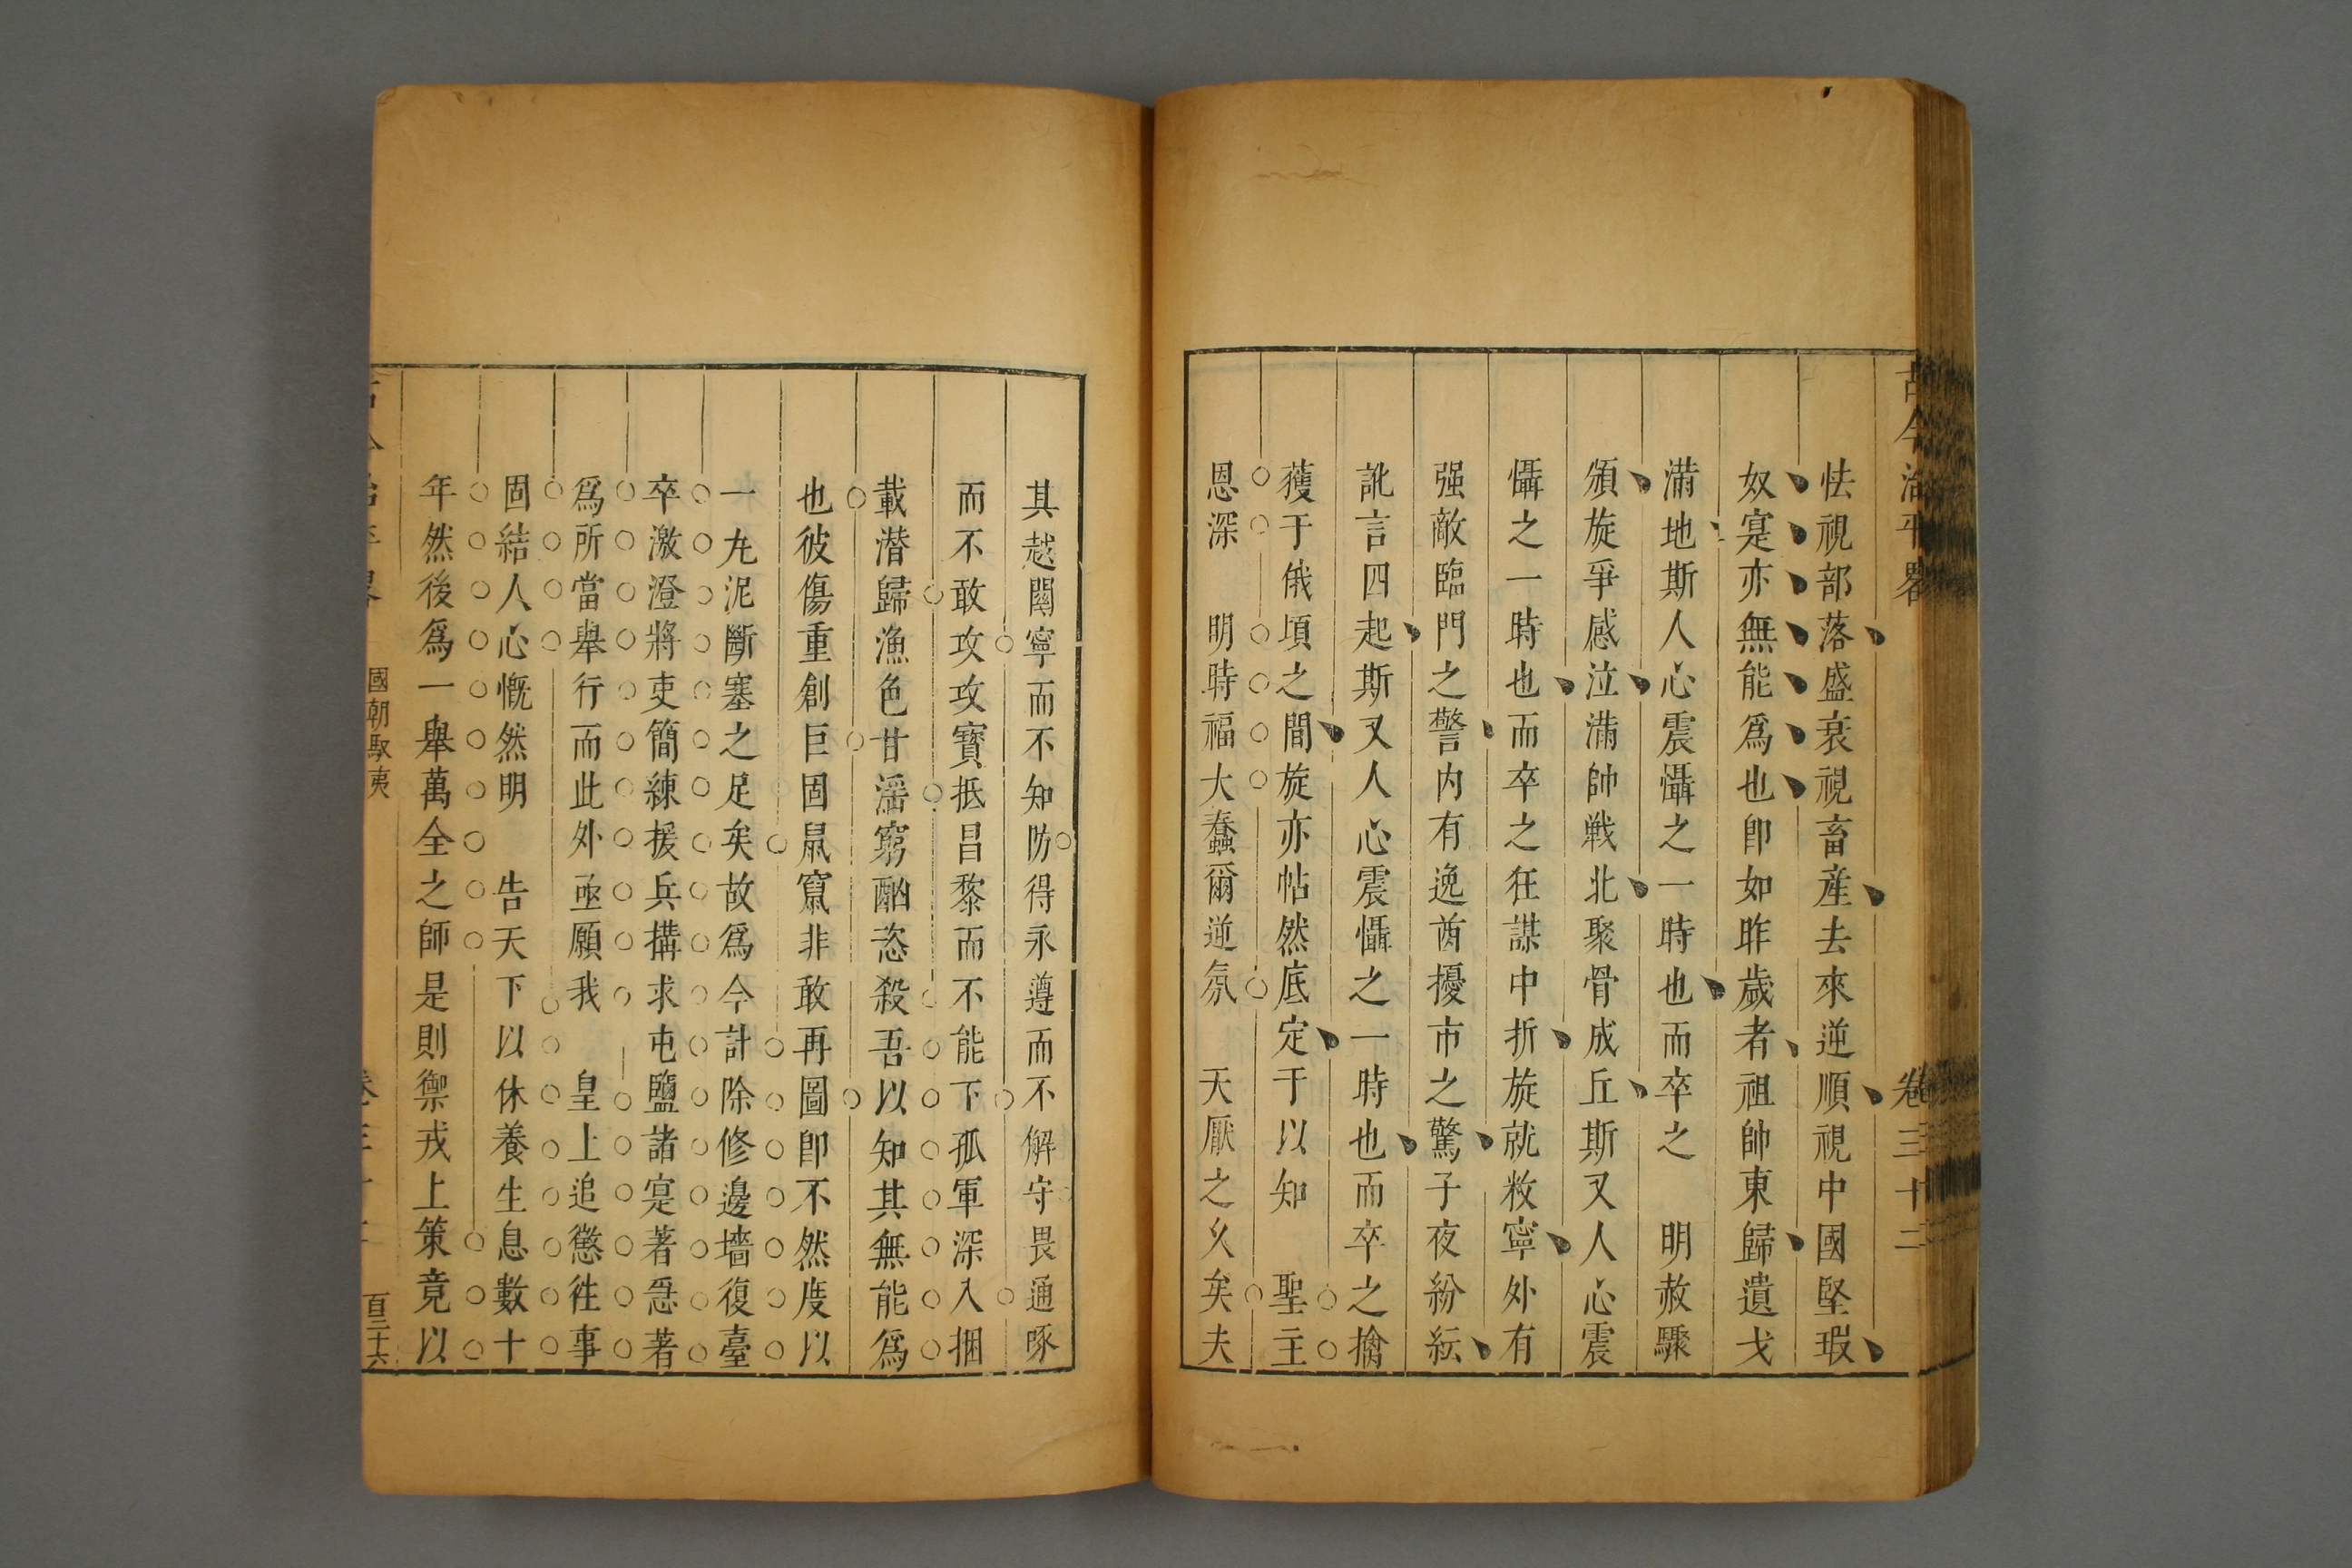 古今治平畧 卷三十二
怯視部落盛衰視畜産去來逆順視中國堅瑕
奴寔亦無能爲也即如昨歲者祖帥東歸遺戈
滿地斯人心震懾之一時也而卒之 明赦驟
頒旋爭感泣滿帥戰北聚骨成丘斯又人心震
懾之一時也而卒之狂謀中折旋就敉寧外有
强敵臨門之警内有逸酋擾市之驚子夜紛紜
訛言四起斯又人心震懾之一時也而卒之擒
獲于俄頃之間旋亦帖然底定于以知 聖主
恩深 明時福大蠢爾逆氛 天厭之乆矣夫
其越關寧而不知防得永遵而不解守畏通啄
而不敢攻攻寳抵昌黎而不能下孤軍深入捆
載潜歸漁色甘滛窮酗恣殺吾以知其無能爲
也彼傷重創巨固鼠竄非敢再圖即不然度以
一九泥斷塞之足矣故爲今計除修邊墻復臺
卒激澄將吏簡練援兵搆求屯鹽諸寔著急著
爲所當舉行而此外亟願我 皇上追懲徃事
固結人心慨然明 告天下以休養生息數十
年然後爲一舉萬全之師是則禦戎上策竟以
國朝馭夷 百三十六